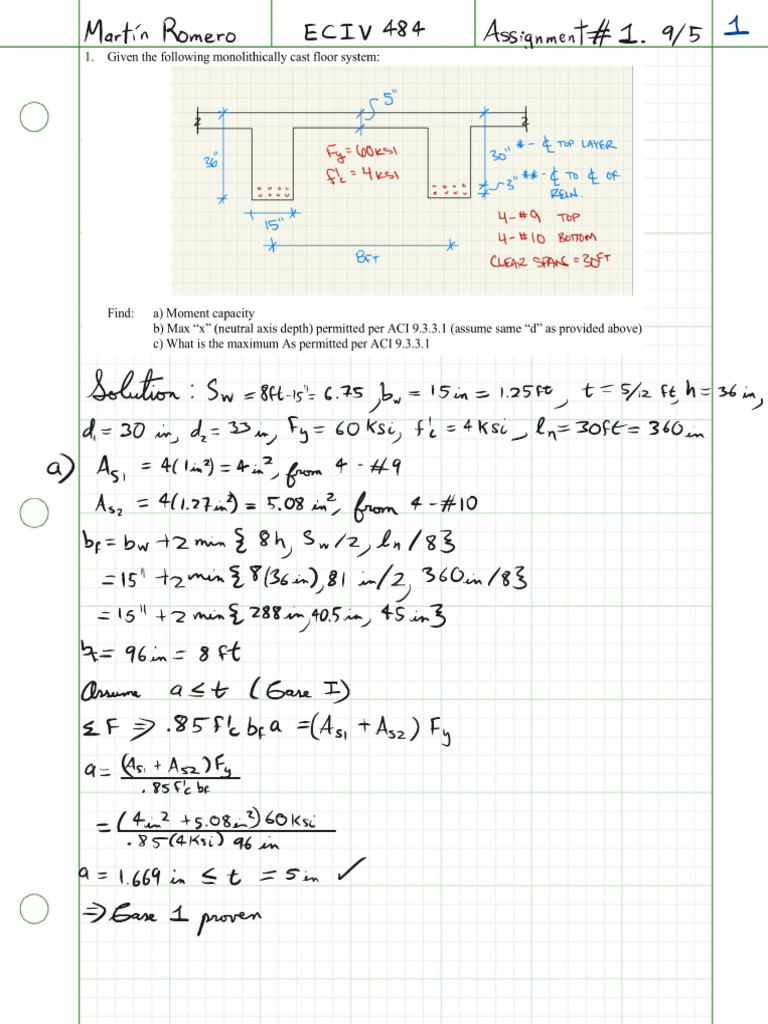 Martín Romero ECIV 484 Assignment # 1. 9/5 1
1. Given the following monolithically cast floor system:
5"
36"
Fy = 60 KSI
f'c = 4 KSI
30" * - ℄ TOP LAYER
3" ** - ℄ TO ℄ OF REIN.
15"
8FT
4-#9 TOP
4-#10 BOTTOM
CLEAR SPAN = 30FT
Find: a) Moment capacity
b) Max “x” (neutral axis depth) permitted per ACI 9.3.3.1 (assume same “d” as provided above)
c) What is the maximum As permitted per ACI 9.3.3.1
Solution: Sw = 8ft-15" = 6.75, bw = 15 in = 1.25 ft, t = 5/12 ft, h = 36 in,
d1 = 30 in, d2 = 33 in, Fy = 60 Ksi, f'c = 4 Ksi, ln = 30 ft = 360 in
a) As1 = 4(1 in²) = 4 in², from 4 - #9
As2 = 4(1.27 in²) = 5.08 in², from 4 - #10
bf = bw + 2 min { 8h, Sw/2, ln/8 }
= 15" + 2 min { 8(36 in), 81 in/2, 360 in/8 }
= 15" + 2 min { 288 in, 40.5 in, 45 in }
bf = 96 in = 8 ft
Assume a ≤ t (Case I)
ΣF ⇒ .85 f'c bf a = (As1 + As2) Fy
a = (As1 + As2) Fy / .85 f'c bf
= (4 in² + 5.08 in²) 60 Ksi / .85 (4 Ksi) 96 in
a = 1.669 in ≤ t = 5 in ✓
⇒ Case 1 proven